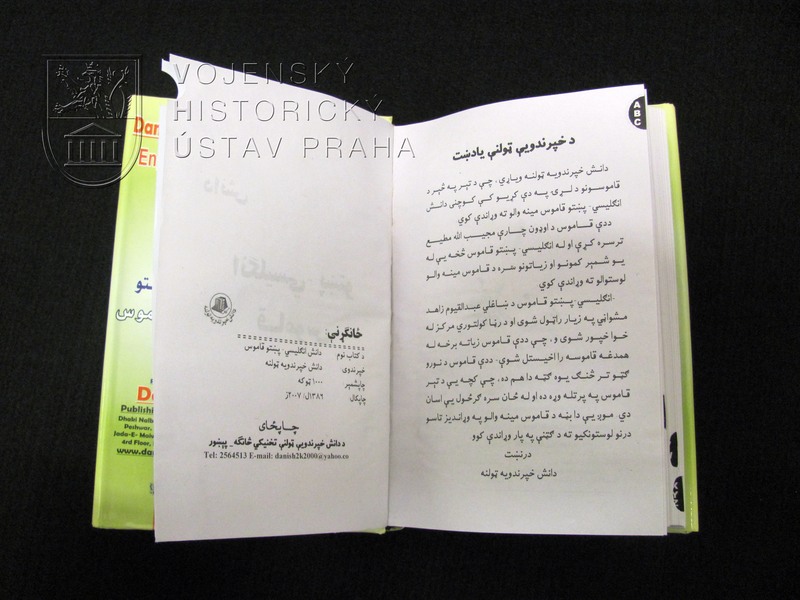 VOJENSKÝ
HISTORICKÝ
ÚSTAV PRAHA
ABC
د خپرندويې ټولنې يادښت
دانش خپرندويه ټولنه وياړي، چې د تېر په څېر د
قاموسونو د لړۍ په دې کړيو کې کوچنی دانش
انګليسي- پښتو قاموس مينه والو ته وړاندې کوي
ددې قاموس د اوډون چارې مجيب الله مطيع
ترسره کړې او له انګليسي- پښتو قاموس څخه يې له
يو شمېر کمونو او زياتونو سره د قاموس مينه والو
لوستوالو ته وړاندې کوي
انګليسي- پښتو قاموس د ښاغلي عبدالقيوم زاهد
مشواڼي په زيار راټول شوی او د رڼا کولتوري مرکز له
خوا خپور شوی و، چې ددې قاموس زياته برخه له
همدغه قاموسه را اخيستل شوې، ددې قاموس د نورو
ګټو تر څنګ يوه ګټه دا هم ده، چې کچه يې د تېر
قاموس په پرتله وړه ده او له ځان سره ګرځول يې اسان
دي. موږ يې دا بڼه د قاموس مينه والو په وړانديز تاسو
درنو لوستونکيو ته د ګټنې په پار وړاندې کوو
درنښت
دانش خپرندويه ټولنه
دانش
انګليسي- پښتو
قاموس
ځانګړنې:
د کتاب نوم دانش انګليسي پښتو قاموس
خپرندوی: دانش خپرندويه ټولنه
چاپشمېر ۱۰۰۰ ټوکه
چاپکال ۱۳۸۶ل/ ۲۰۰۷ز
چاپځای
د دانش خپرندويې ټولنې تخنيکي څانګه_ پېښور
Tel: 2564513 E-mail: danish2k2000@yahoo.co
Dan
En
Publishin
Dhaki Nalb
Peshwar,
Jada-E- Maiw
4rd Floor,
www.da